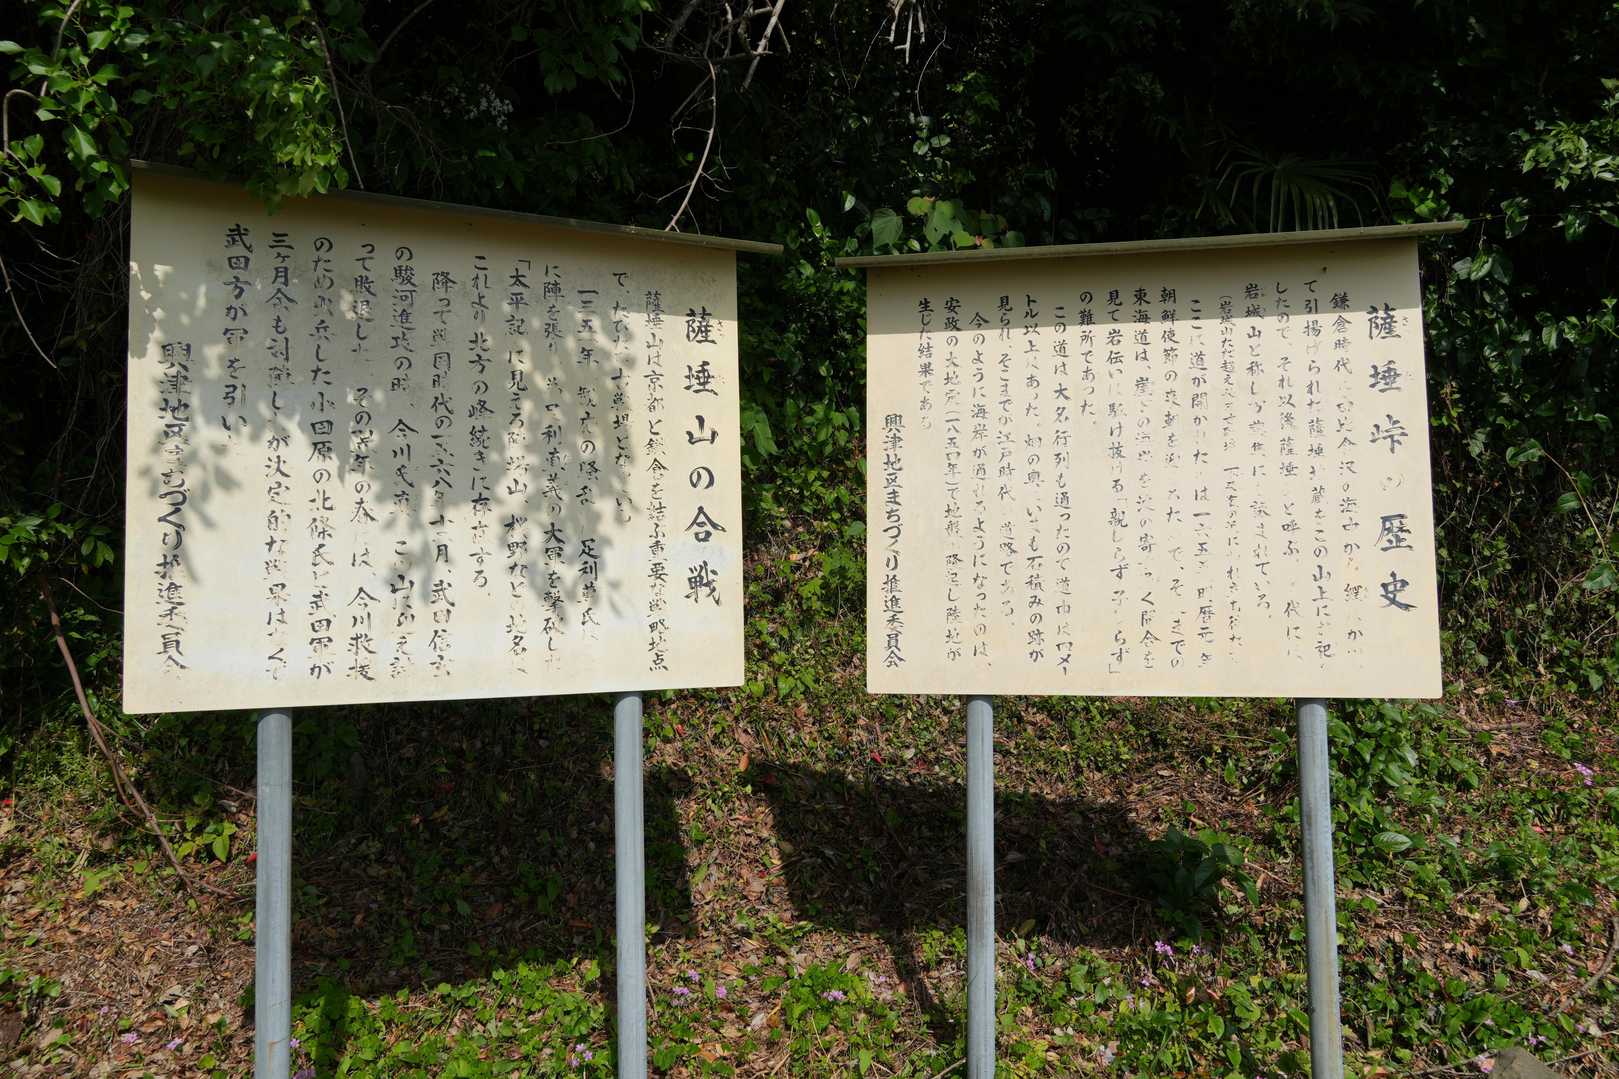 薩埵峠の歴史
鎌倉時代に由比倉沢の海中から網にかか
て引揚げられた薩埵地蔵をこの山上にお祀り
したので、それ以後薩埵山と呼ぶ 代には
岩城山と称し万葉集にも詠まれている。
(岩城山ただ越え
ここに道が開かれたのは一六五 明暦元
朝鮮使節の来朝を迎 た で、そ までの
東海道は、崖下の海岸を波の寄せ 引く間合を
見て岩伝いに駆け抜ける「親しらず子しらず」
の難所であった。
この道は大名行列も通ったので道巾は四メー
トル以上あった。畑の奥 いまも石積みの跡が
見られ、そこまでが江戸時代の道路である。
今のように海岸が通れるようになったのは、
安政の大地震(一八五四年)で地盤が隆起し陸地が
生じた結果である。
興津地区まちづくり推進委員会
薩埵山の合戦
薩埵山は京都と鎌倉を結ぶ重要な戦略地点
で、たびたび古戦場となっ
一三五一年 観応の騒乱 足利尊氏
に陣を張り 足利直義の大軍を撃破した
「太平記」に見える 山、桜野などの地名は
これより北方の峰続きに存在する。
降って戦国時代の一五六八年十二月、武田信玄
の駿河進攻の時、今川氏真 この山
って敗退した その翌年の春には、今川救援
のため出兵した小田原の北條氏と武田軍が
三ヶ月余も対陣したが決定的な戦果はなくて
武田方が軍を引い
興津地区まちづくり推進委員会